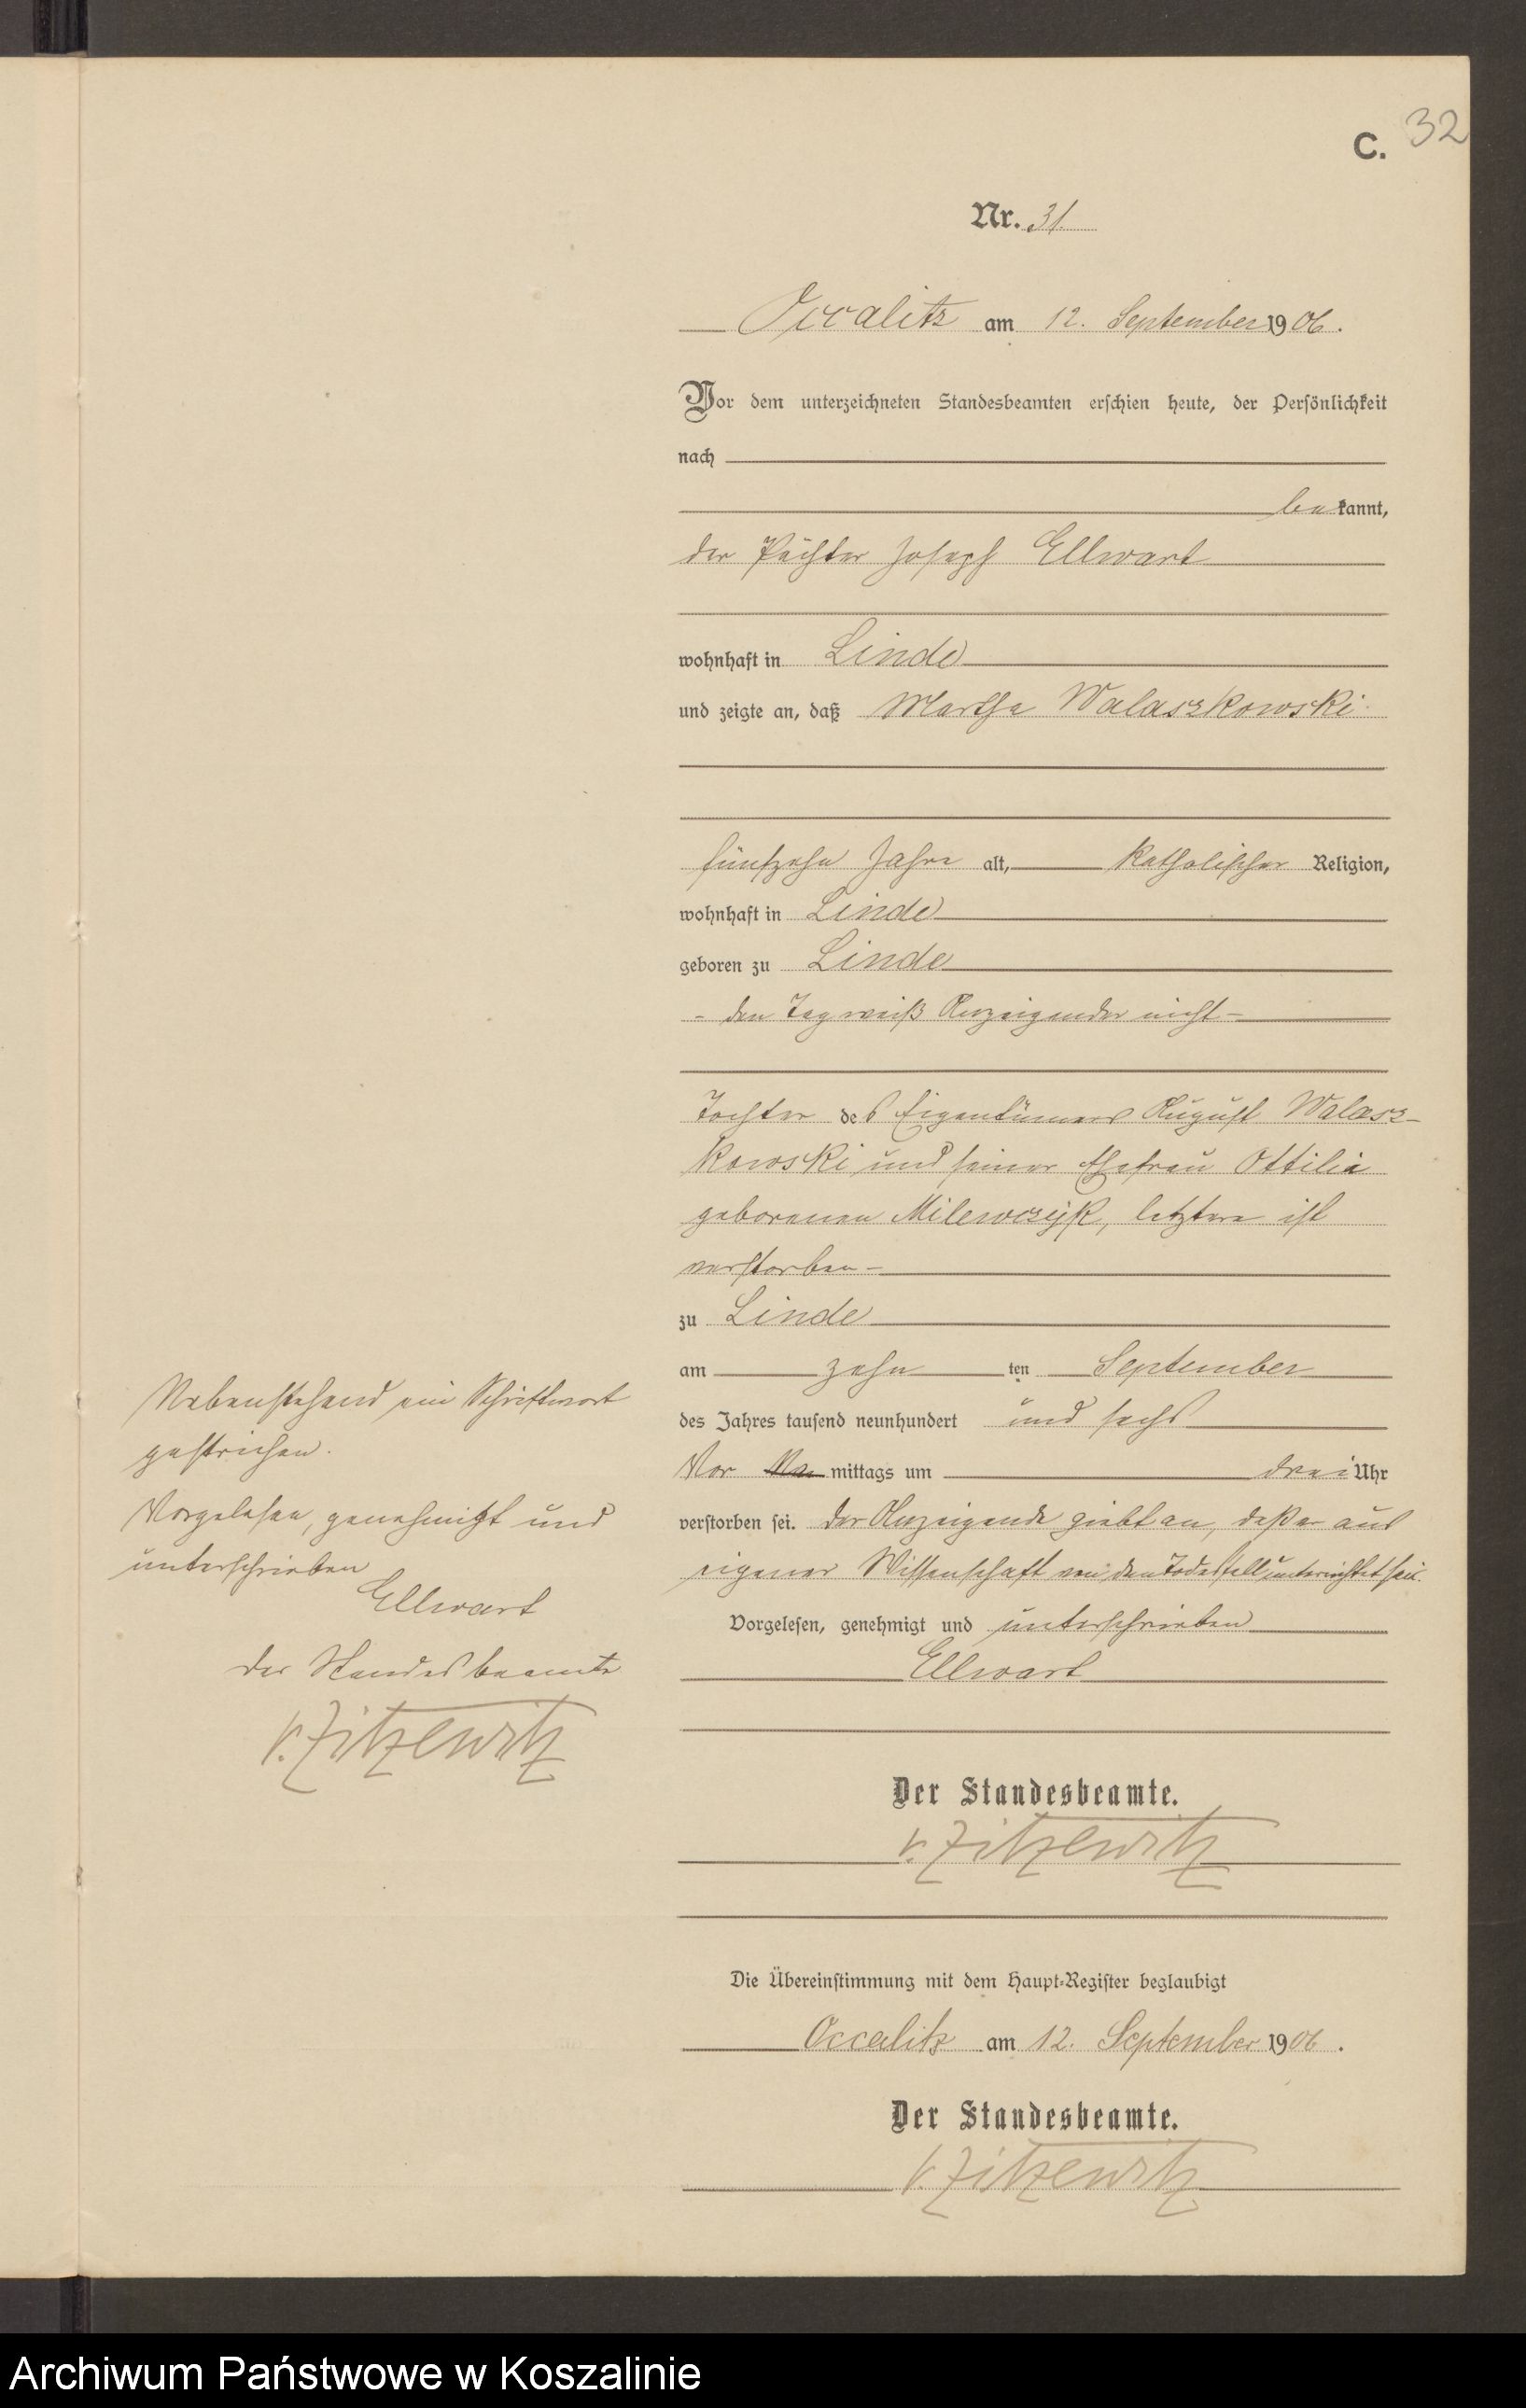 C. 32
Nr. 31
Occalitz am 12. September 1906.
Vor dem unterzeichneten Standesbeamten erschien heute, der Persönlichkeit
nach
bekannt,
der Pächter Joseph Ellwart
wohnhaft in Linde
und zeigte an, daß Martha Walaszkowski
fünfzehn Jahre alt, katholischer Religion,
wohnhaft in Linde
geboren zu Linde
- den Tag weiß Anzeigender nicht -
Tochter des Eigentümers August Walasz-
kowski und seiner Ehefrau Ottilie
geborenen Milewczyk, letztere ist
verstorben -
zu Linde
am zehnten September
des Jahres tausend neunhundert und sechs
Vor Na mittags um drei Uhr
verstorben sei. Der Anzeigende giebt an, daß er aus
eigener Wissenschaft von dem Todesfall unterrichtet sei.
Vorgelesen, genehmigt und unterschrieben
Ellwart
Der Standesbeamte.
v. Zitzewitz
Die Übereinstimmung mit dem Haupt-Register beglaubigt
Occalitz am 12. September 1906.
Der Standesbeamte.
v. Zitzewitz
Nebenstehend ein Schriftwort
gestrichen.
Vorgelesen, genehmigt und
unterschrieben
Ellwart
Der Standesbeamte
v. Zitzewitz
Archiwum Państwowe w Koszalinie